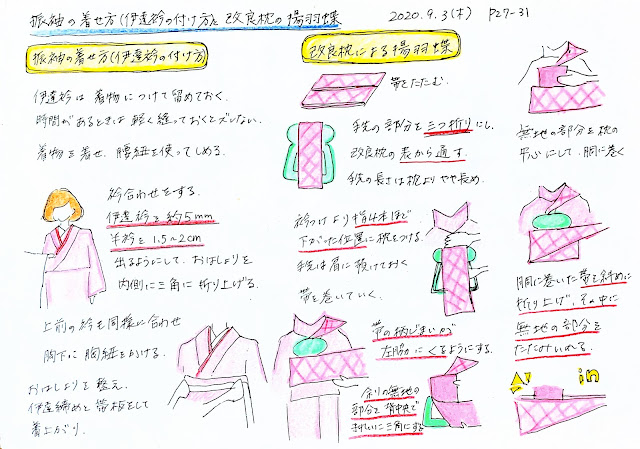 振袖の着せ方(伊達衿の付け方)と改良枕の揚羽蝶
2020.9.3(木) P27-31
振袖の着せ方(伊達衿の付け方)
伊達衿は着物につけて留めておく.
時間があるときは軽く縫っておくとズレない.
着物を着せ.腰紐を使ってしめる.
衿合わせをする.
伊達衿を約5mm
半衿を1.5~2cm
出るようにして.おはしょりを
内側に三角に折り上げる.
上前の衿も同様に合わせ
胸下に胸紐をかける.
おはしょりを整え.
伊達締めと帯板をして
着上がり.
改良枕による揚羽蝶
帯をたたむ.
手先の部分を三つ折りにし.
改良枕の表から通す.
手先の長さは枕よりやや長め.
衿つけより指4本ほど
下がった位置に枕をつける.
手先は肩に預けておく
帯を巻いていく.
帯の柄じまいが
左脇にくるようにする.
余りの無地の
部分を背中央で
きれいに三角にする
無地の部分を枕の
中心にして.胴に巻く
胴に巻いた帯を斜めに
折り上げ.その中に
無地の部分を
たたみいれる.
in